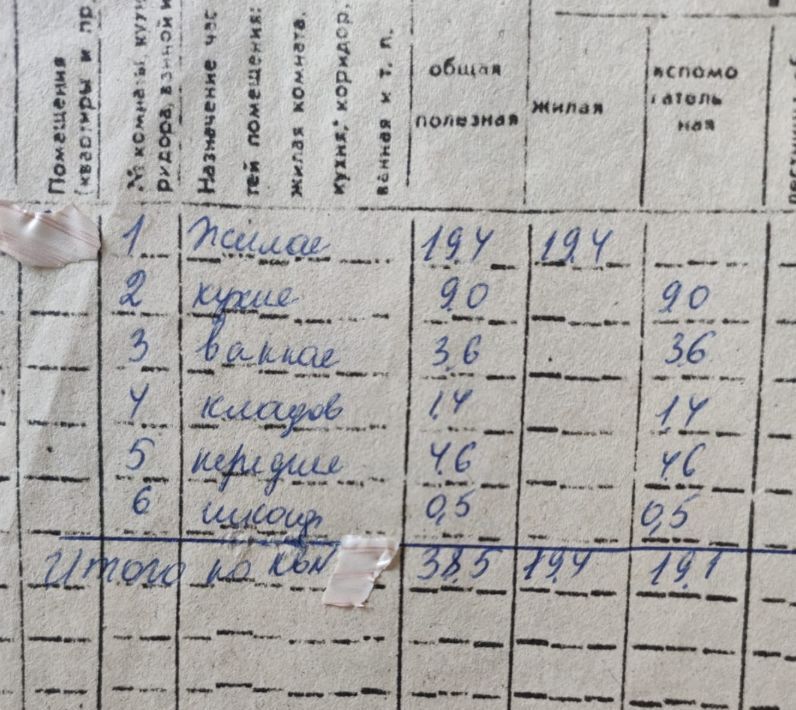 Помещения квартиры и пр.
№ комнаты, кухни, коридора, ванной и
Назначение частей помещения: жилая комната, кухня, коридор, ванная и т. п.
общая полезная
жилая
вспомогательная
1 жилая 19,4 19,4
2 кухня 9,0 9,0
3 ванная 3,6 3,6
4 кладов 1,4 1,4
5 передняя 4,6 4,6
6 шкаф 0,5 0,5
Итого по кв N 38,5 19,4 19,1